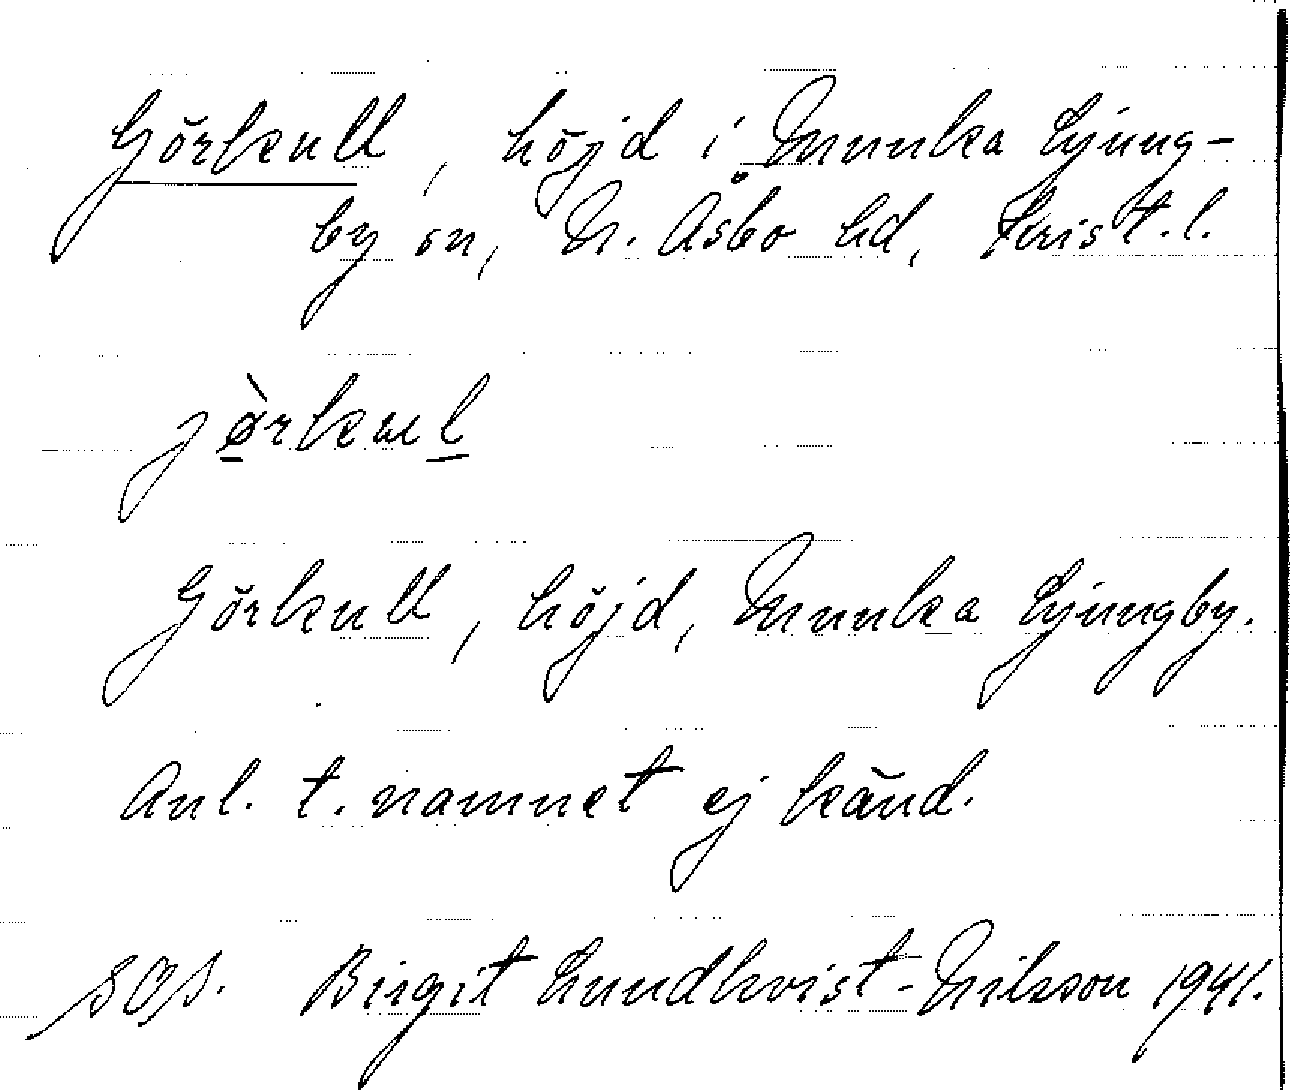 Görkull, höjd i Munka Ljung-
by sn, N. Åsbo hd, Krist. l.
jø̀rkul
Görkull, höjd, Munka Ljungby.
Anl. t. namnet ej känd.
Birgit Lundkvist-Nilsson 1941.